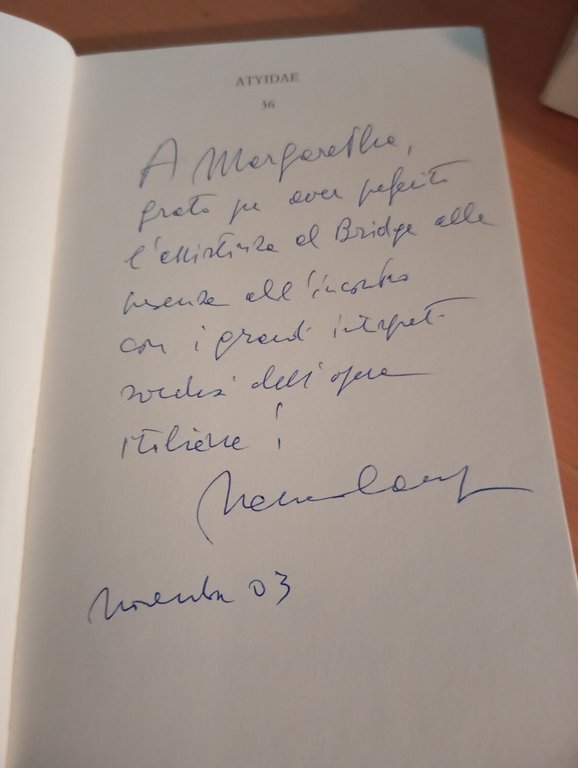 ATYIDAE
36
A Margaretha,
grato per aver preferito
l'assistenza al Bridge alla
presenza all'incontro
con i grandi interpreti
svedesi dell'opera
italiana!
novembre 03